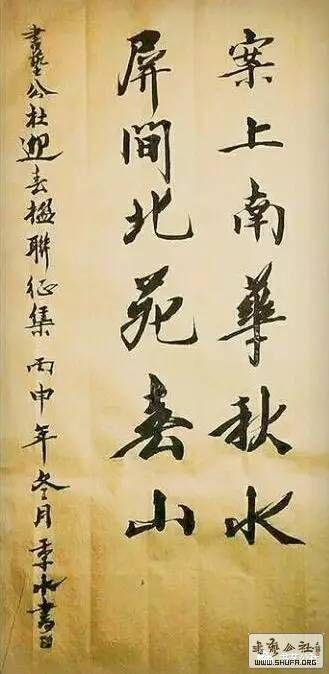 案上南華秋水
屏間北苑春山
書藝公社迎春楹聯征集 丙申年冬月 季水書
書藝公社
WWW.SHUFA.ORG